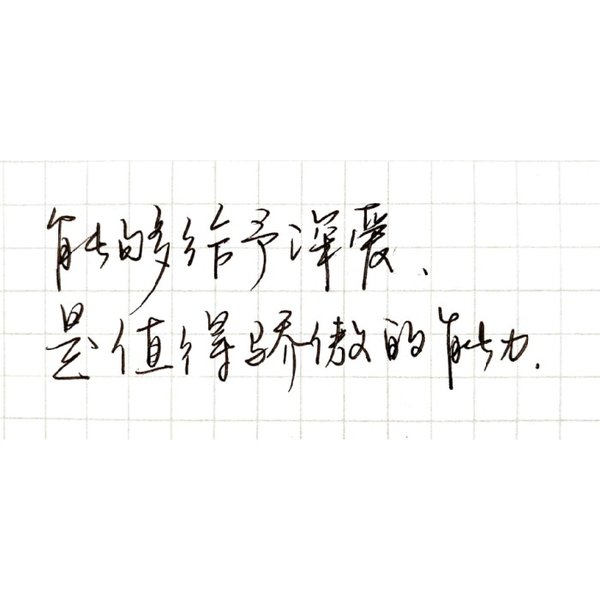 能够给予深爱、
是值得骄傲的能力.